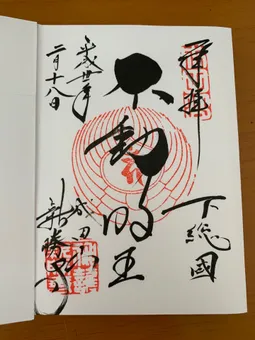 奉拝
下総國
不動明王
平成廿年
二月十八日
成田山
新勝寺